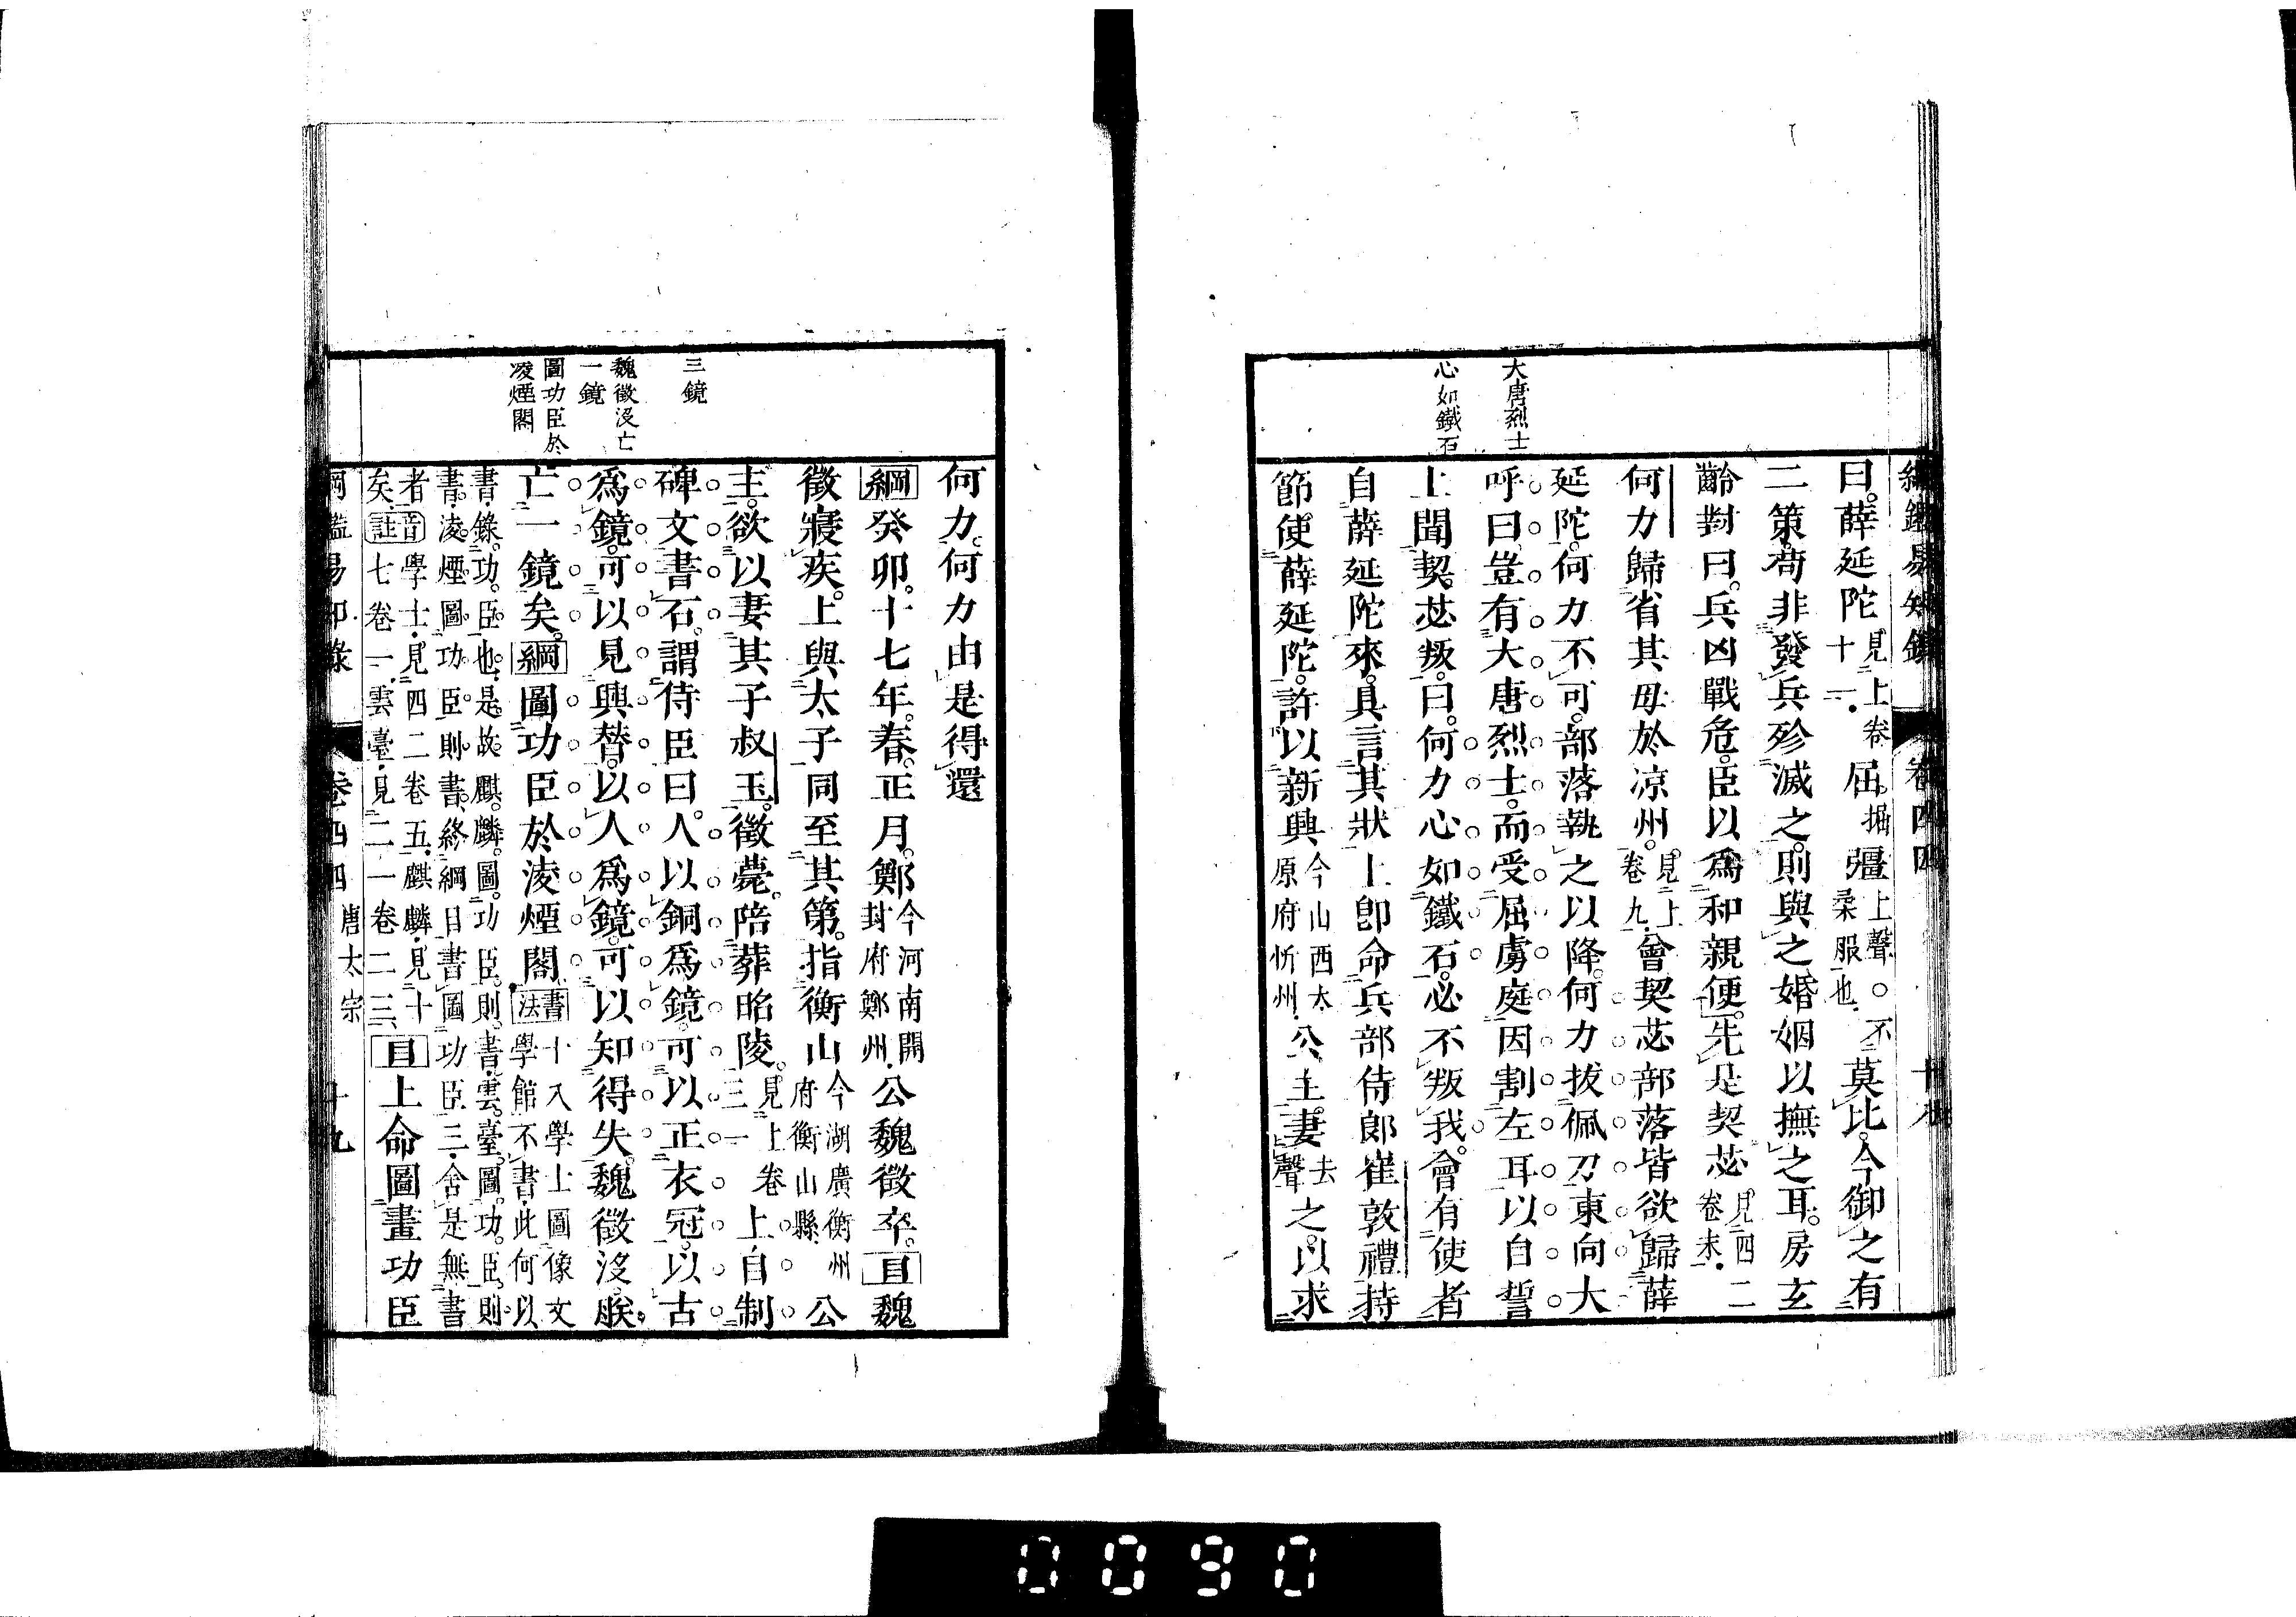 綱鑑易知錄 卷四四 十九
大唐烈士
心如鐵石
曰。薛延陀見上卷十一。屈。掘彊上聲。○不柔服也。莫比。今御之有
二策。苟非發兵殄滅之。則與之婚姻以撫之耳。房玄
齡對曰。兵凶戰危。臣以爲和親便。先是契苾見四二卷末。
何力歸省其母於涼州。見上卷九。會契苾部落皆欲歸薛
延陀。何力不可。部落執之以降。何力拔佩刀東向大
呼曰。豈有大唐烈士。而受屈虜庭。因割左耳以自誓
上聞契苾叛。曰。何力心如鐵石。必不叛我。會有使者
自薛延陀來。具言其狀上卽命兵部侍郎崔敦禮持
節。使薛延陀。許以新興今山西太原府忻州。公主。妻去聲之。以求
三鏡
魏徵沒亡
一鏡
圖功臣於
凌煙閣
何力。何力由是得還
綱癸卯。十七年。春。正月。鄭今河南開封府鄭州。公魏徵卒。目魏
徵寢疾。上與太子同至其第。指衡山今湖廣衡州府衡山縣。公
主。欲以妻其子叔玉。徵薨。陪葬昭陵。見上卷三一上自制
碑文書石。謂侍臣曰。人以銅爲鏡。可以正衣冠。以古
爲鏡。可以見興替。以人爲鏡。可以知得失。魏徵沒。朕
亡一鏡矣。綱圖功臣於凌煙閣。書法十八學士圖像文學館不書。此何以
書。錄功臣也。是故麒麟圖功臣。則書。雲臺圖功臣。則
書。凌煙圖功臣。則書。終綱目書圖功臣三。舍是無書
者矣。音註學士。見四二卷五。麒麟。見十七卷一。雲臺。見二一卷二三。目上命圖畫功臣
綱鑑易知錄 卷四四 唐太宗 十九
0090